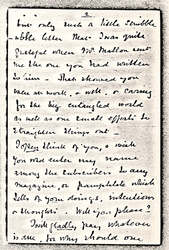 2
but only such a little scribble
able letter that I was quite
grateful when Mr. Mallon sent
me the one you had written
to him - That showed you
were at work, & well, & caring
for the big entangled world
as well as our small efforts to
straighten things out -
I often think of you, & wish
you would enter my name
among the subscribers to any
magazine, or pamphlets which
tells of your doings, intentions
or thoughts. Will you please?
I will gladly pay whatever
is due, for why should one